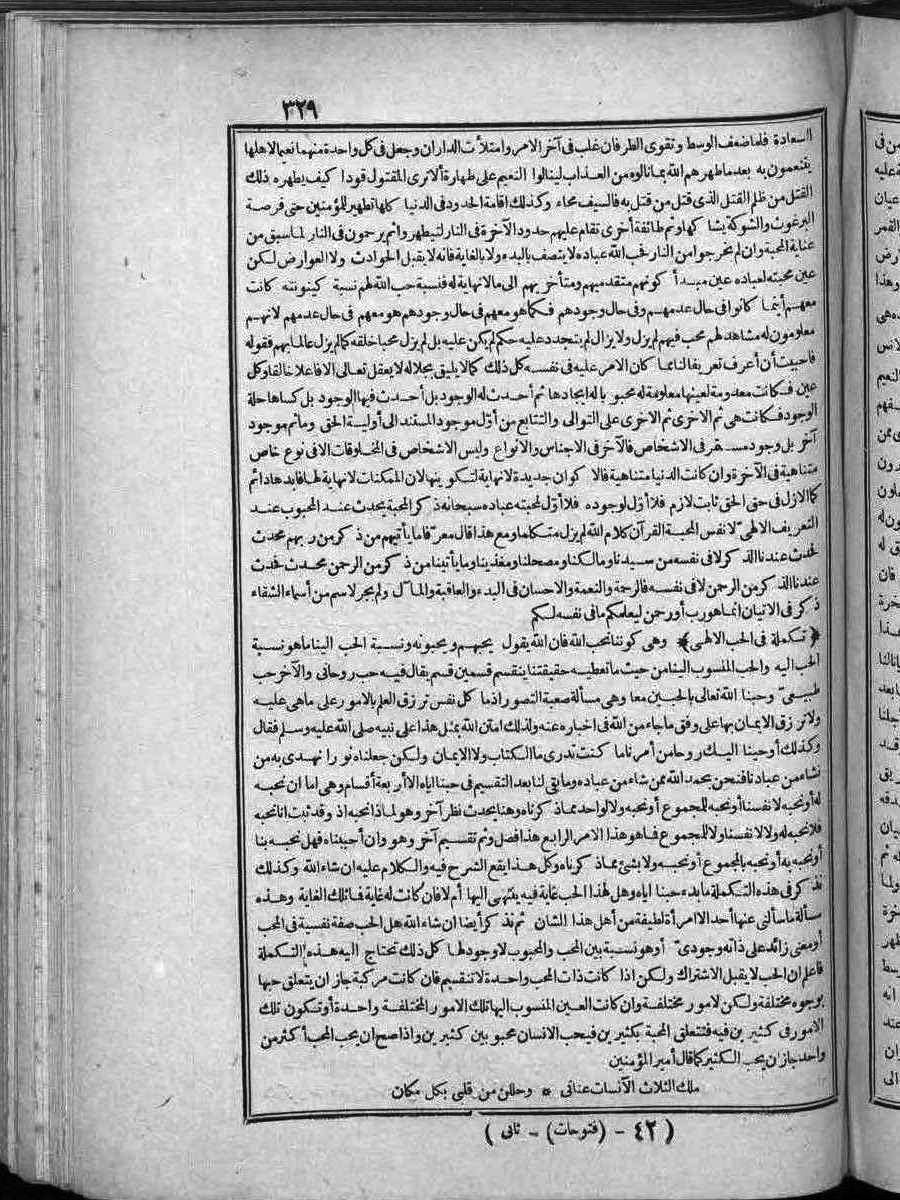 ٣٢٩
السعادة فلما ضعف الوسط وتقوى الطرفان غلب فى آخر الامر وامتلأت الداران وجعل فى كل واحدة منهما نعيما لاهلها
يتنعمون به بعد ما طهرهم الله بما نالوه من العذاب لينالوا النعيم على طهارة ألا ترى المقتول قودا كيف يطهره ذلك
القتل من ظلم القتل الذى قتل من قتل به فالسيف محاء وكذلك اقامة الحدود فى الدنيا كلها تطهير للمؤمنين حتى قرصة
البرغوث والشوكة يشاكها وثم طائفة أخرى تقام عليهم حدود الآخرة فى النار ليتطهر واثم يرحمون فى النار لما سبق من
عناية المحبة وان لم يخرجوا من النار فحب الله عباده لا يتصف بالبدء ولا بالغاية فانه لا يقبل الحوادث ولا العوارض لكن
عين محبته لعباده عين مبدأ كونهم متقدميهم ومتأخريهم الى ما لا نهاية له فنسبة حب الله لهم نسبة كينونته كانت
معهم أينما كانوا فى حال عدمهم وفى حال وجودهم فكما هو معهم فى حال وجودهم هو معهم فى حال عدمهم لانهم
معلومون له مشاهد لهم محب فيهم لم يزل ولا يزال لم يتجدد عليه حكم لم يكن عليه بل لم يزل محبا خلقه كما لم يزل عالما بهم فقوله
فاحببت أن أعرف تعريفا لنا بما كان الامر عليه فى نفسه كل ذلك كما يليق بجلاله لا يعقل تعالى الا فاعلا خالقا وكل
عين فكانت معدومة لعينها معلومة له محبوبا له ايجادها ثم أحدث له الوجود بل أحدث فيها الوجود بل كساها حلة
الوجود فكانت هى ثم الاخرى ثم الاخرى على التوالى والتتابع من أول موجود المستند الى أولية الحق وما ثم موجود
آخر بل وجود مستقر فى الاشخاص فالآخر فى الاجناس والانواع وليس الاشخاص فى المخلوقات الا فى نوع خاص
متناهية فى الآخرة وان كانت الدنيا متناهية فالا كوان جديدة لا نهاية لتكوينها لان الممكنات لا نهاية لها فابدها دائم
كما الازل فى حق الحق ثابت لازم فلا أول لوجوده فلا أول لمحبته عباده سبحانه ذكر المحبة يحدث عند المحبوب عند
التعريف الالهى لا نفس المحبة القرآن كلام الله لم يزل متكلما ومع هذا قال معرفا ما يأتيهم من ذكر من ربهم محدث
فحدث عندنا الذكر لا فى نفسه من سيدنا ومالكنا ومصلحنا ومغذينا وما يأتينا من ذكر من الرحمن محدث فحدث
عندنا الذكر من الرحمن لا فى نفسه فالرحة والنعمة والاحسان فى البدء والعاقبة والمآل ولم يجر لاسم من أسماء الشقاء
ذكر فى الاتيان انما هو رب أو رحمن ليعلمكم ما فى نفسه لكم
﴿ تكملة فى الحب الالهى ﴾ وهى كوننا نحب الله فان الله يقول يحبهم ويحبونه ونسبة الحب الينا ما هو نسبة
الحب اليه والحب المنسوب الينا من حيث ما تعطيه حقيقتنا ينقسم قسمين قسم يقال فيه حب روحانى والآخر حب
طبيعى وحبنا الله تعالى بالحبين معا وهى مسألة صعبة التصور اذ ما كل نفس ترزق العلم بالامور على ما هى عليه
ولا ترزق الايمان بها على وفق ما جاء من الله فى اخباره عنه ولذلك امتن الله بمثل هذا على نبيه صلى الله عليه وسلم فقال
وكذلك أوحينا اليك روحا من أمرنا ما كنت تدرى ما الكتاب ولا الايمان ولكن جعلناه نورا نهدى به من
نشاء من عبادنا فنحن بحمد الله ممن شاء من عباده وما بقى لنا بعد التقسيم فى حبنا اياه الا أربعة أقسام وهى اما ان نحبه
له أو نحبه لانفسنا أو نحبه للمجموع أو نحبه ولا لواحد مما ذكرناه وهنا يحدث نظر آخر وهو لماذا نحبه اذ وقد ثبت انا نحبه
فلا نحبه له ولا لانفسنا ولا للمجموع فما هو هذا الامر الرابع هذا فصل وثم تقسيم آخر وهو وان أحببناه فهل نحبه بنا
أو نحبه به أو نحبه بالمجموع أو نحبه ولا بشئ مما ذكرناه وكل هذا يقع الشرح فيه والكلام عليه ان شاء الله وكذلك
نذكر فى هذه التكملة ما بدء حبنا اياه وهل لهذا الحب غاية فيه ينتهى اليها أم لا فان كانت له غاية فما تلك الغاية وهذه
مسألة ما سألنى عنها أحد الا امرأة لطيفة من أهل هذا الشان ثم نذكر أيضا ان شاء الله هل الحب صفة نفسية فى المحب
أو معنى زائد على ذاته وجودى أو هو نسبة بين المحب والمحبوب لا وجود لها كل ذلك تحتاج اليه هذه التكملة
فاعلم ان الحب لا يقبل الاشتراك ولكن اذا كانت ذات المحب واحدة لا تنقسم فان كانت مركبة جاز ان يتعلق حبها
بوجوه مختلفة ولكن لامور مختلفة وان كانت العين المنسوب اليها تلك الامور المختلفة واحدة أو تكون تلك
الامور فى كثيرين فيه فتتعلق المحبة بكثيرين فيحب الانسان محبوبين كثيرين واذا صح ان يحب المحب أكثر من
واحد جاز ان يحب الكثير كما قال أمير المؤمنين
ملك الثلاث الآنسات عنانى * وحللن من قلبى بكل مكان
( ٤٢ - (فتوحات) - ثانى )